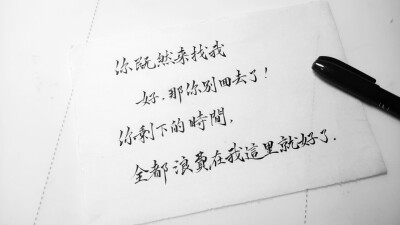 你既然来找我
好.那你别回去了!
你剩下的時間,
全都浪費在我這里就好了.